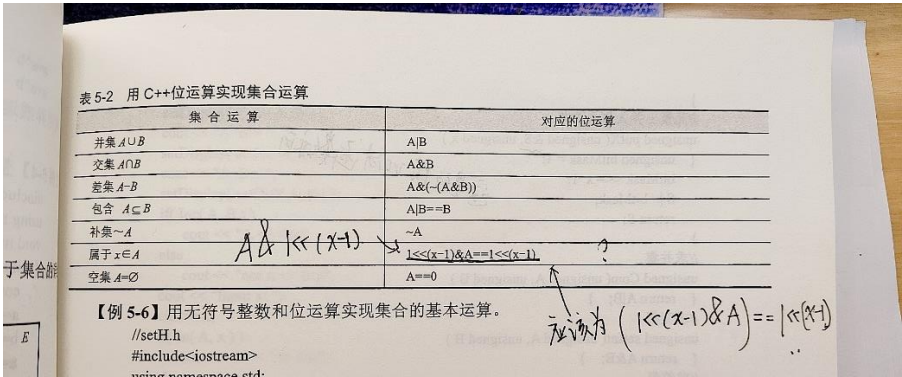 表 5-2 用 C++位运算实现集合运算
集 合 运 算 对应的位运算
并集 A∪B A|B
交集 A∩B A&B
差集 A-B A&(~(A&B))
包含 A⊆B A|B==B
补集~A ~A
A & 1<<(x-1)
属于 x∈A 1<<(x-1)&A==1<<(x-1) ?
空集 A=∅ A==0
于集合的
【例 5-6】用无符号整数和位运算实现集合的基本运算。
应该为 (1<<(x-1)&A)==1<<(x-1)
//setH.h
E
#include<iostream>
using namespace std;